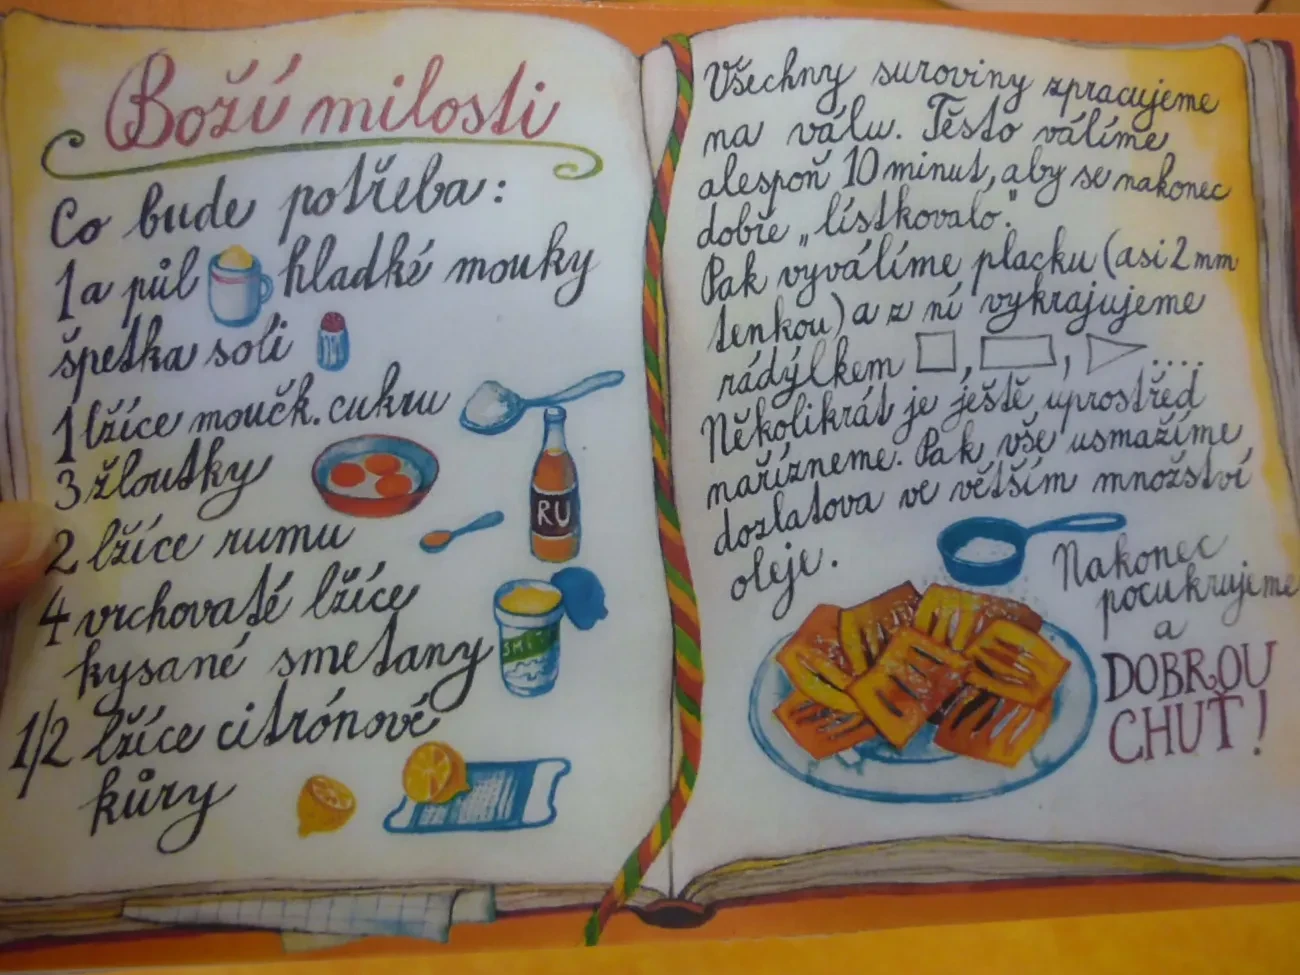 Boží milosti
Co bude potřeba:
1 a půl hladké mouky
špetka soli
1 lžíce moučk. cukru
3 žloutky
2 lžíce rumu
RU
4 vrchovaté lžíce
kysané smetany
SMET
1/2 lžíce citrónové
kůry
Všechny suroviny zpracujeme
na válu. Těsto válíme
alespoň 10 minut, aby se nakonec
dobře „lístkovalo“.
Pak vyválíme placku (asi 2 mm
tenkou) a z ní vykrajujeme
rádýlkem , , ....
Několikrát je ještě uprostřed
nařízneme. Pak vše usmažíme
dozlatova ve větším množství
oleje.
Nakonec
pocukrujeme
a
DOBROU
CHUŤ!